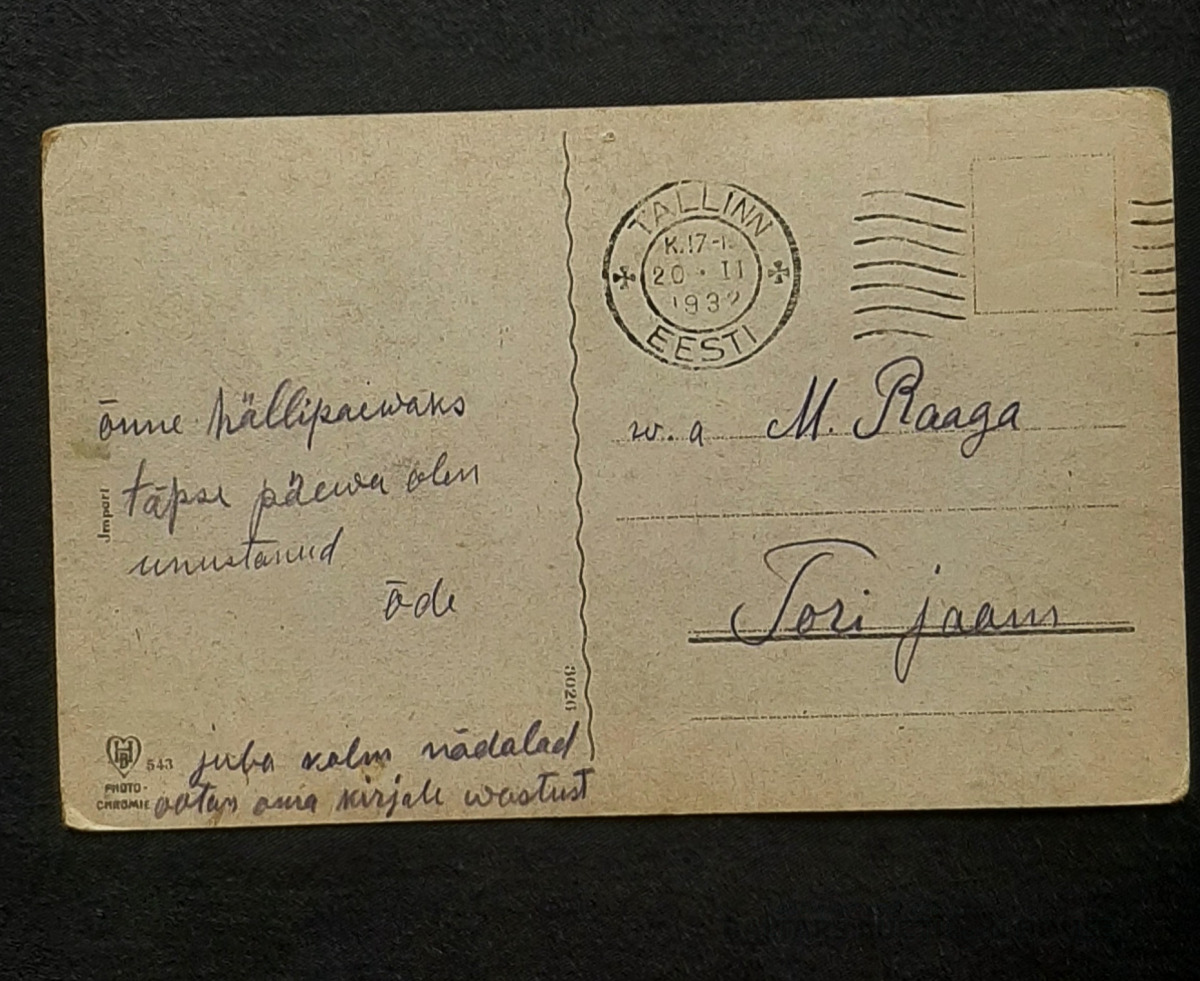 õnne hällipaewaks
täpse päewa olen
unustanud
õde
juba kolm nädalad
ootan oma kirjale wastust
Import
3026
HB
543
PHOTO-
CHROMIE
TALLINN
K.17-
20 · II
193
EESTI
w. a M. Raaga
Tori jaam